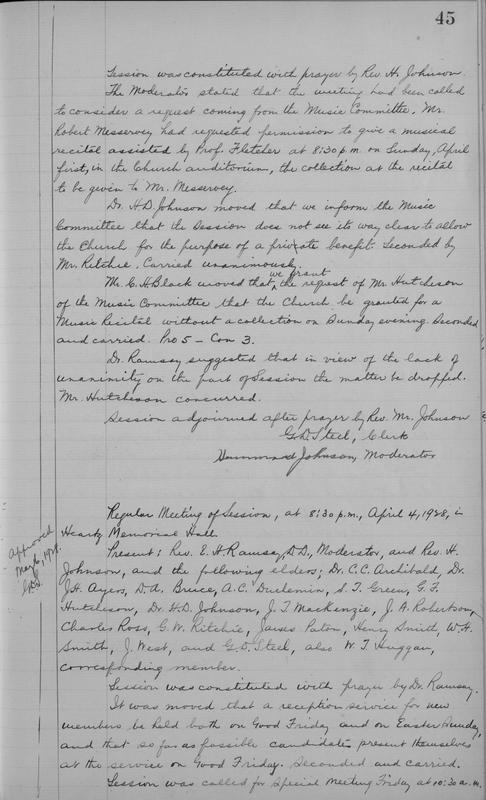 45
Session was constituted with prayer by Rev. H. Johnson.
The Moderator stated that the meeting had been called
to consider a request coming from the Music Committee. Mr.
Robert Messervey had requested permission to give a musical
recital assisted by Prof. Fletcher at 8:30 p.m. on Sunday, April
first, in the Church auditorium, the collection at the recital
to be given to Mr. Messervey.
Dr. H D Johnson moved that we inform the Music
Committee that the Session does not see its way clear to allow
the Church for the purpose of a private benefit. Seconded by
Mr. Ritchie. Carried unanimously.
we grant
Mr. C. H Black moved that ^ the request of Mr. Hutcheson
of the Music Committee that the Church be granted for a
Music Recital without a collection on Sunday evening. Seconded
and carried. Pro 5 - Con 3.
Dr. Ramsay suggested that in view of the lack of
unanimity on the part of Session the matter be dropped.
Mr. Hutcheson concurred.
Session adjourned after prayer by Rev. Mr. Johnson
G. D. Steel, Clerk
Hammond Johnson, Moderator
Regular Meeting of Session, at 8:30 p.m., April 4, 1928, in
Heartz Memorial Hall.
approved
May 6, 1928.
Present: Rev. E. H Ramsay, D.D., Moderator, and Rev. H.
Johnson, and the following elders; Dr. C. C. Archibald, Dr.
J H. Ayers, D. A. Bruce, A. C. Duchemin, S. T. Green, G. F.
Hutcheson, Dr. H D. Johnson, J. T MacKenzie, J. A. Robertson,
Charles Ross, G. W. Ritchie, James Paton, Henry Smith, W. H.
Smith, J. West, and G. D. Steel, also W. T Huggan,
corresponding member.
Session was constituted with prayer by Dr. Ramsay.
It was moved that a reception service for new
members be held both on Good Friday and on Easter Sunday,
and that so far as possible candidates present themselves
at the service on Good Friday. Seconded and carried.
Session was called for special meeting Friday at 10:30 a.m.